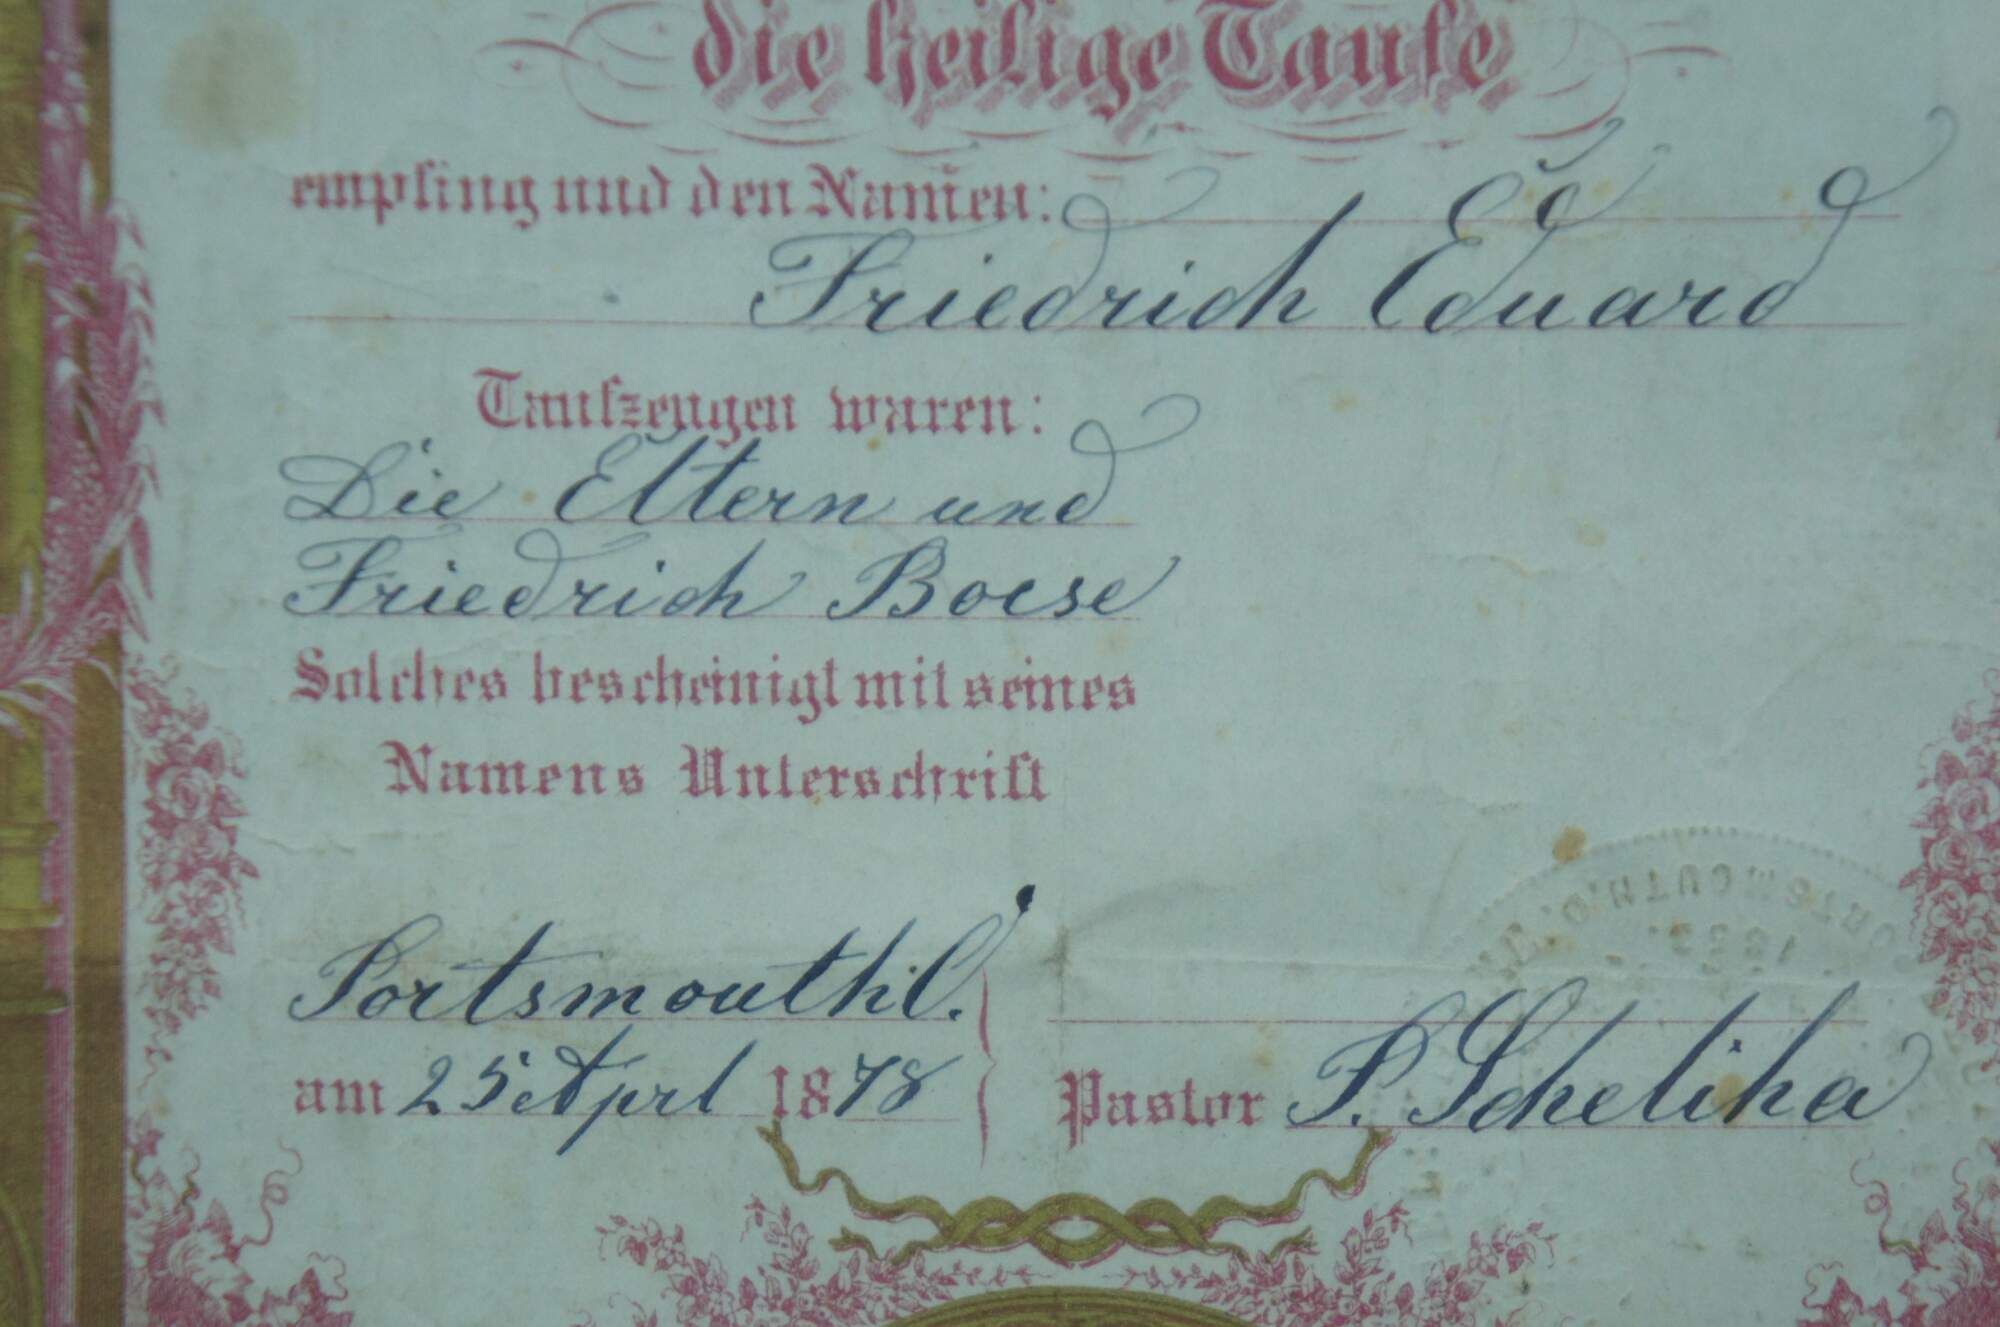 die heilige Taufe
empfing und den Namen:
Friedrich Eduard
Taufzeugen waren:
Die Eltern und
Friedrich Boese
Solches bescheinigt mit seines
Namens Unterschrift
Portsmouth
am 25 Aprl 1878
Pastor P. Scheliha
PORTSMOUTH, O.